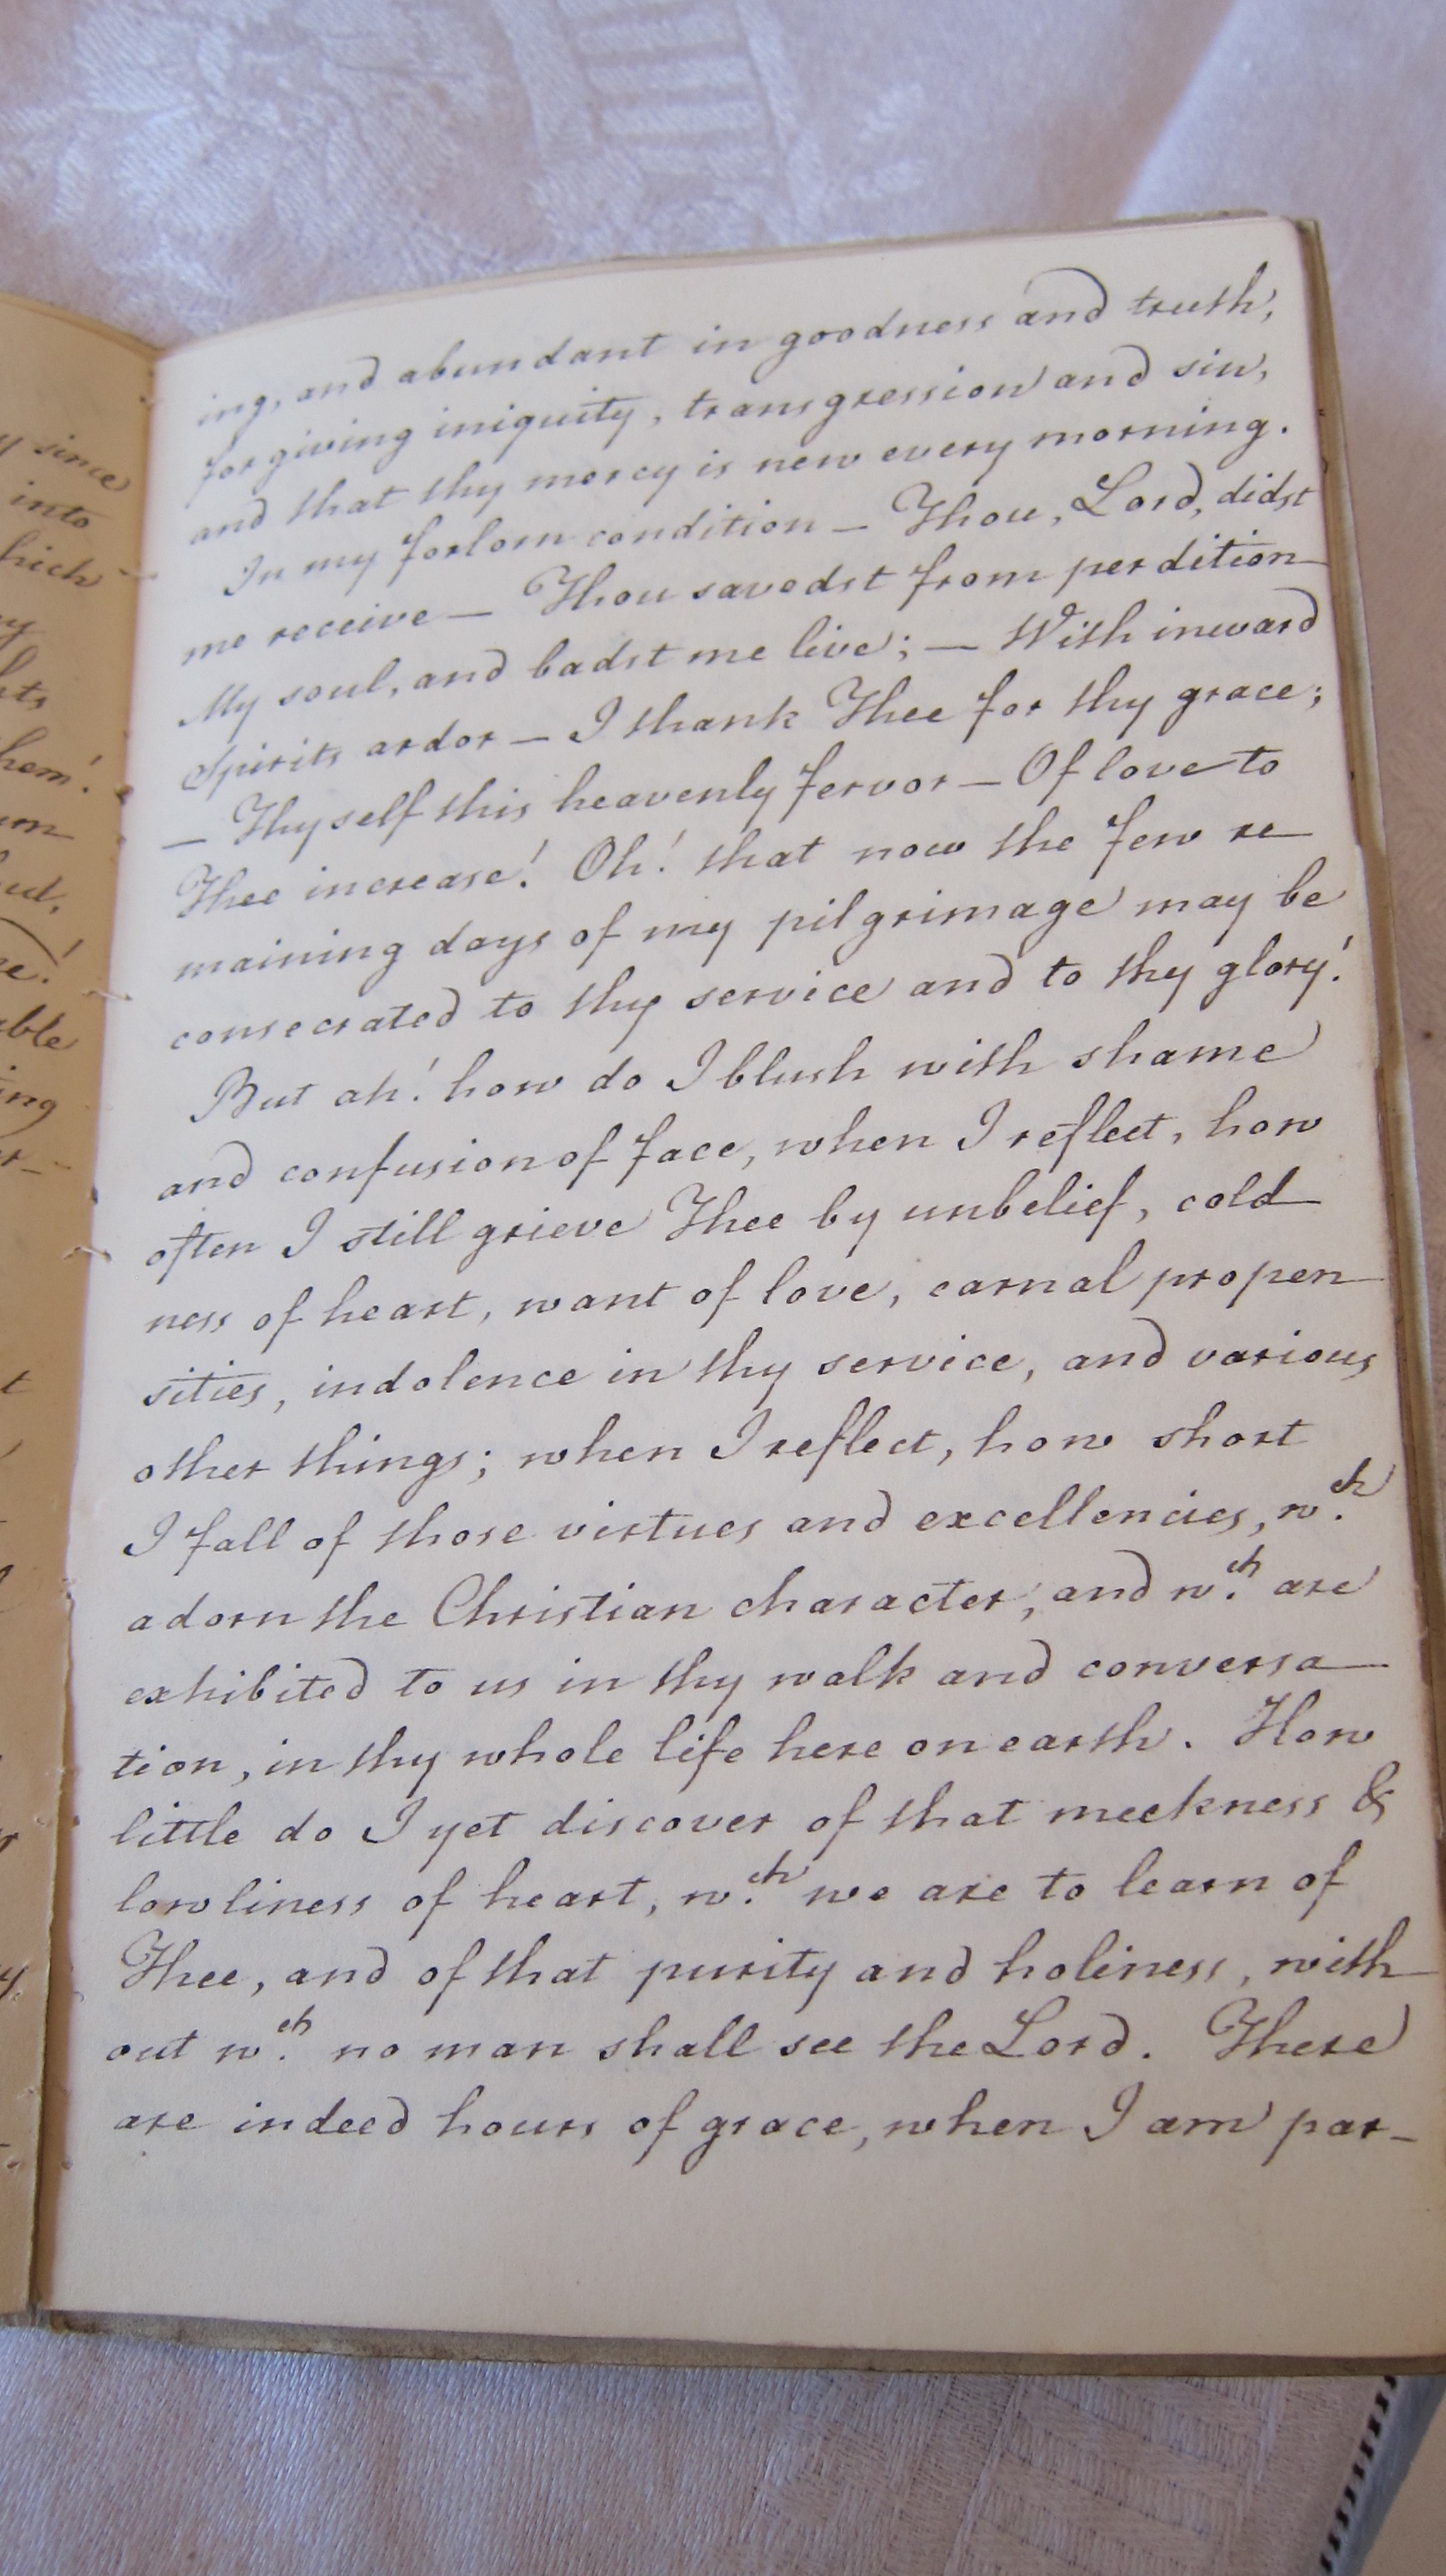 y since
into
hich
y
hts
hem!
um
ud,
re!
able
ing
r-
t
y.
ing, and abundant in goodness and truth,
forgiving iniquity, transgression and sin,
and that thy mercy is new every morning.
In my forlorn condition — Thou, Lord, didst
me receive — Thou savedst from perdition
My soul, and badst me live; — With inward
Spirits ardor — I thank Thee for thy grace;
— Thyself this heavenly fervor — Of love to
Thee increase! Oh! that now the few re
maining days of my pilgrimage may be
consecrated to thy service and to thy glory!
But ah! how do I blush with shame
and confusion of face, when I reflect, how
often I still grieve Thee by unbelief, cold
ness of heart, want of love, carnal propen
sities, indolence in thy service, and various
other things; when I reflect, how short
I fall of those virtues and excellencies, wch.
adorn the Christian character, and wch. are
exhibited to us in thy walk and conversa
tion, in thy whole life here on earth. How
little do I yet discover of that meekness &
lowliness of heart, wch. we are to learn of
Thee, and of that purity and holiness, with
out wch. no man shall see the Lord. There
are indeed hours of grace, when I am par-